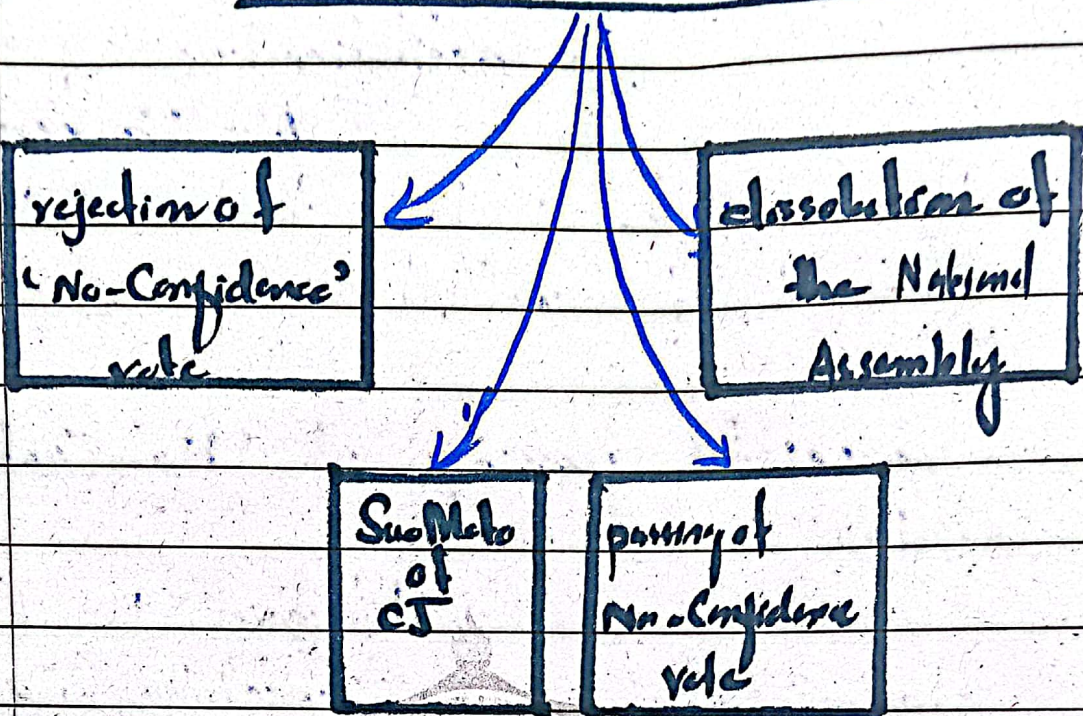 rejection of
'No-Confidence'
vote
dissolution of
the National
Assembly
Suo Moto
of
CJ
passing of
No-Confidence
vote